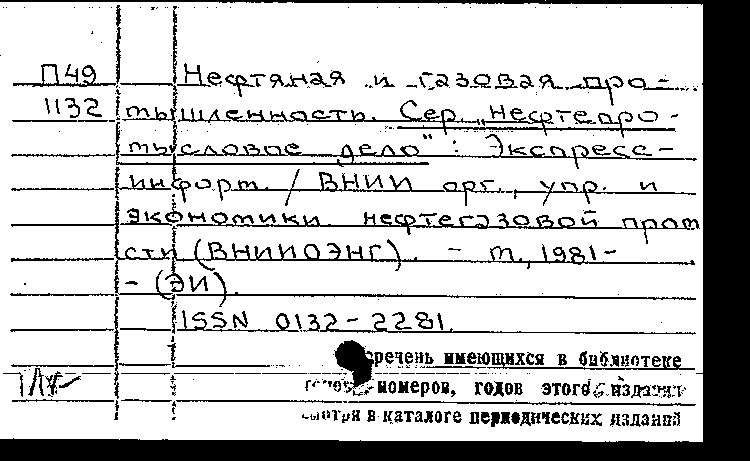 П49 Нефтяная и газовая про-
1132 мышленность. Сер. „Нефтепро-
мысловое дело": Экспресс-
информ. / ВНИИ орг., упр. и
экономики нефтегазовой пром-
сти (ВНИИОЭНГ). - М., 1981-
- (ЭИ).
ISSN 0132-2281.
Перечень имеющихся в библиотеке
номеров, годов этого издания
смотри в каталоге периодических изданий